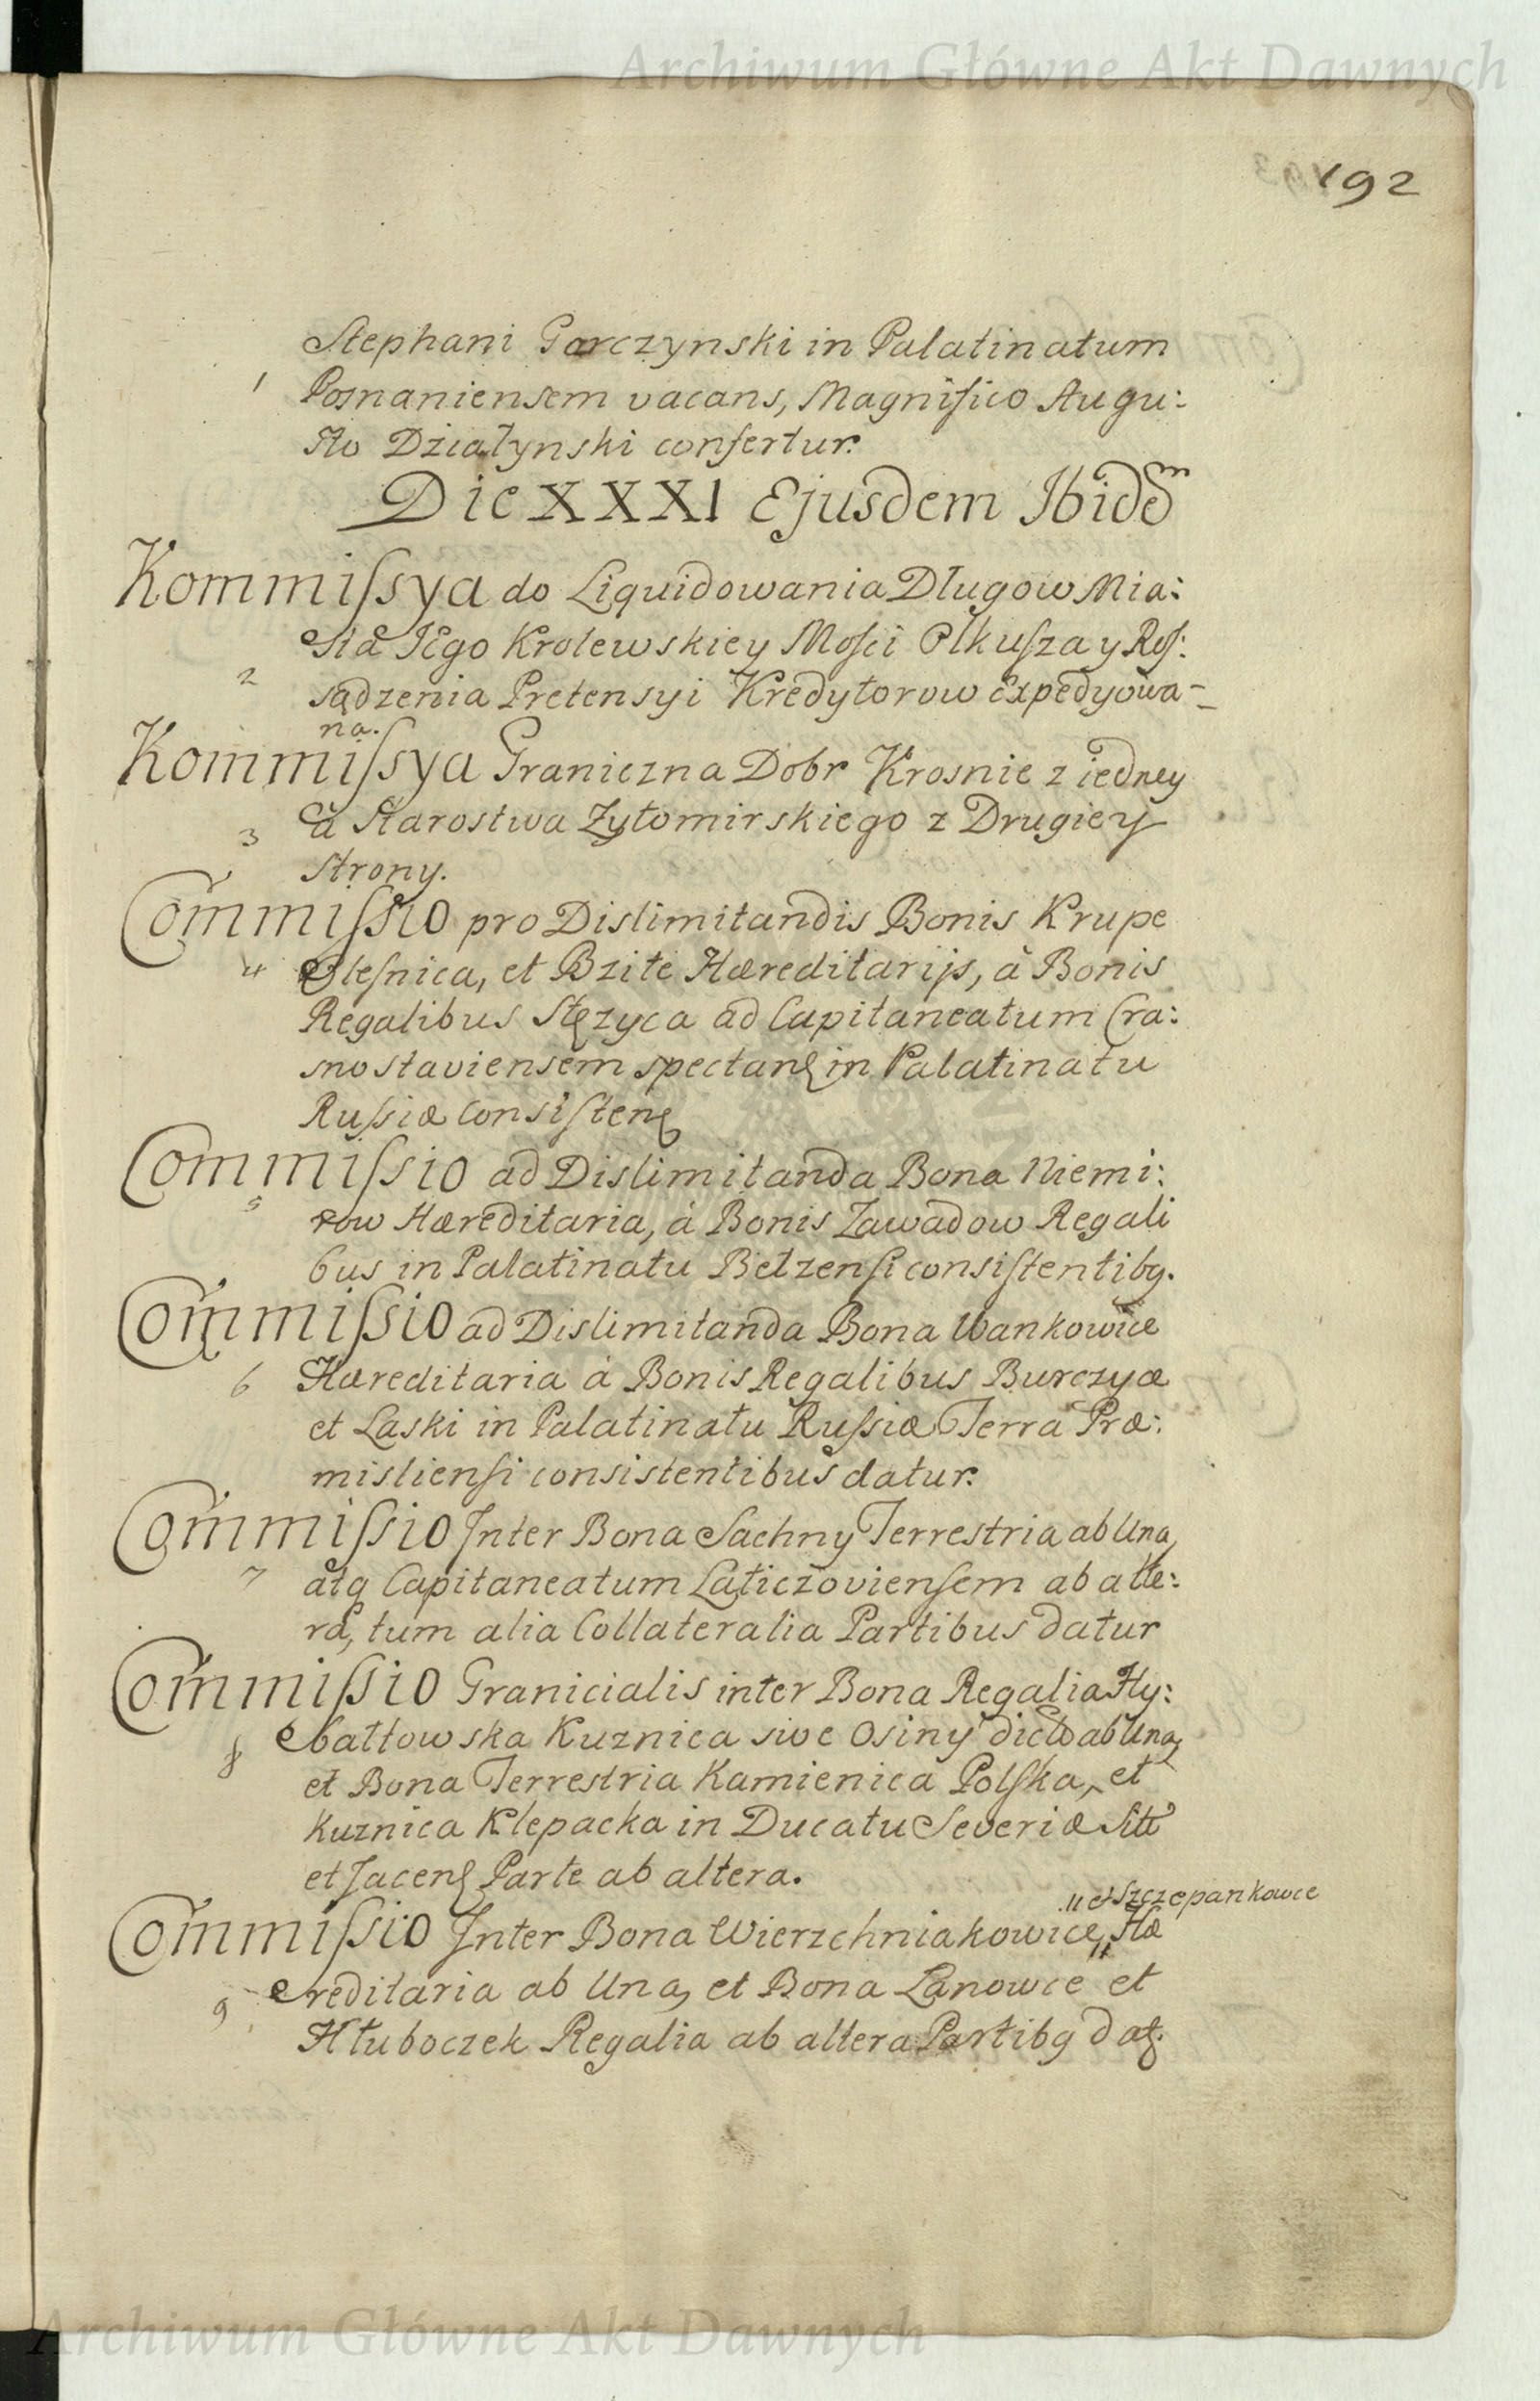 Archiwum Główne Akt Dawnych
192
Stephani Garczynski in Palatinatum
1 Posnaniensem vacans, Magnifico Augu:
sto Działynski confertur.
Die XXXI Ejusdem Ibidem
Kommissya do Liquidowania Długow Mia:
sta Jego Krolewskiey Mości Olkusza y Ros:
2 sądzenia Pretensyi Kredytorow expedyowa-
na.
Kommissya Graniczna Dobr Krosnie z iedney
3 a Starostwa Zytomirskiego z Drugiey
strony.
Commissio pro Dislimitandis Bonis Krupe
4 Olesnica, et Bzite Hæreditarijs, à Bonis
Regalibus Stęzyca ad Capitaneatum Cra:
snostaviensem spectan in Palatinatu
Russiæ Consisten
Commissio ad Dislimitanda Bona Niemi:
5 row Hæreditaria, à Bonis Zawadow Regali
bus in Palatinatu Belzensi consistentibq.
Commissio ad Dislimitanda Bona Wankowice
6 Hæreditaria à Bonis Regalibus Burczyce
et Laski in Palatinatu Russiæ Terra Præ:
misliensi consistentibus datur.
Commissio Inter Bona Sachny Terrestria ab Una,
7 atq Capitaneatum Laticzoviensem ab alte:
ra, tum alia Collateralia Partibus datur
Commissio Granicialis inter Bona Regalia Hy:
8 battowska Kuznica sive Osiny dicta ab Una,
et Bona Terrestria Kamienica Polska, et
Kuznica Klepacka in Ducatu Severiæ Sitt
et Jacen Parte ab altera.
" et Szczepankowce
Commissio Inter Bona Wierzchniakowice " Hæ
9 reditaria ab Una, et Bona Lanowce et
Hłuboczek Regalia ab altera Partibq dat.
Archiwum Główne Akt Dawnych